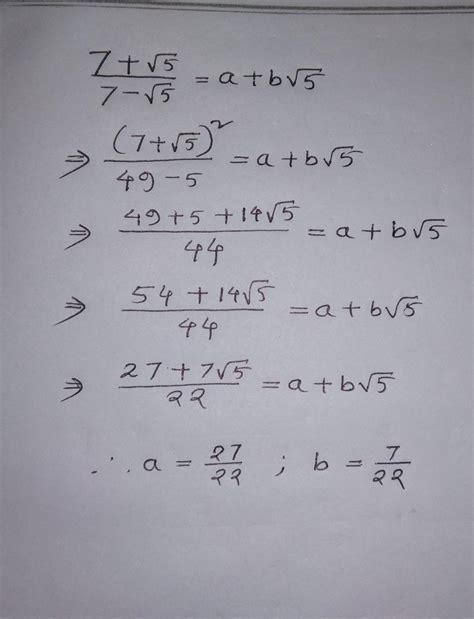 (7+√5)/(7-√5) = a+b√5
⇒ (7+√5)²/(49-5) = a+b√5
⇒ (49+5+14√5)/44 = a+b√5
⇒ (54+14√5)/44 = a+b√5
⇒ (27+7√5)/22 = a+b√5
∴ a = 27/22 ; b = 7/22